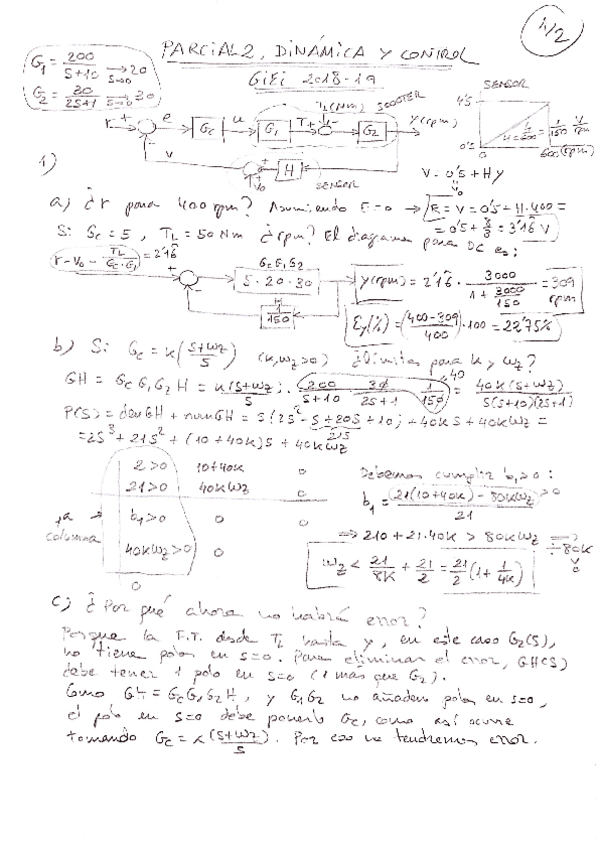 1/2
PARCIAL 2, DINÁMICA Y CONTROL
GIEI 2018-19
G1 = 200/(S+10) →(S→0) 20
G2 = 30/(2S+1) →(S→0) 30
TL(Nm) SCOOTER
r + - e Gc u G1 T + - G2 Y(rpm)
v + + H SENSOR
V0
SENSOR
4'5
0'5
0
600 (rpm)
H = 4/600 = 1/150 V/rpm
V = 0'5 + Hy
V0
1)
a) ¿r para 400 rpm? Asumiendo E=0 → R = V = 0'5 + H·400 =
= 0'5 + 8/3 = 3'16 V
Si Gc = 5, TL = 50 Nm ¿rpm? El diagrama para DC es:
r - V0 - TL/(Gc·G1) = 2'16
Gc G1 G2
5·20·30
H
1/150
y(rpm) = 2'16 · 3000/(1 + 3000/150) = 309 rpm
Ey(%) = ((400-309)/400)·100 = 22'75%
b) Si Gc = K((S+wz)/S) (K, wz>0) ¿límites para K y wz?
GH = Gc G1 G2 H = K(S+wz)/S · 200/(S+10) · 30/(2S+1) · 1/150 = 40K(S+wz)/(S(S+10)(2S+1))
40
P(S) = denGH + numGH = S(2S² + S + 20S + 10) + 40KS + 40Kwz =
21S
= 2S³ + 21S² + (10+40K)S + 40Kwz
2>0 10+40K 0
21>0 40Kwz 0
1ª columna → b1>0 0 0
40Kwz>0 0
0
Debemos cumplir b1>0:
b1 = (21(10+40K) - 80Kwz)/21 > 0
⇒ 210 + 21·40K > 80Kwz ⇒
÷80K
V
0
wz < 21/8K + 21/2 = 21/2 (1 + 1/4K)
c) ¿Por qué ahora no habrá error?
Porque la F.T. desde TL hasta y, en este caso G2(S),
no tiene polos en s=0. Para eliminar el error, GH(S)
debe tener 1 polo en s=0 (1 más que G2).
Como GH = Gc G1 G2 H, y G1 G2 no añaden polos en s=0,
el polo en s=0 debe ponerlo Gc, como así ocurre
tomando Gc = K(S+wz)/S. Por eso no tendremos error.